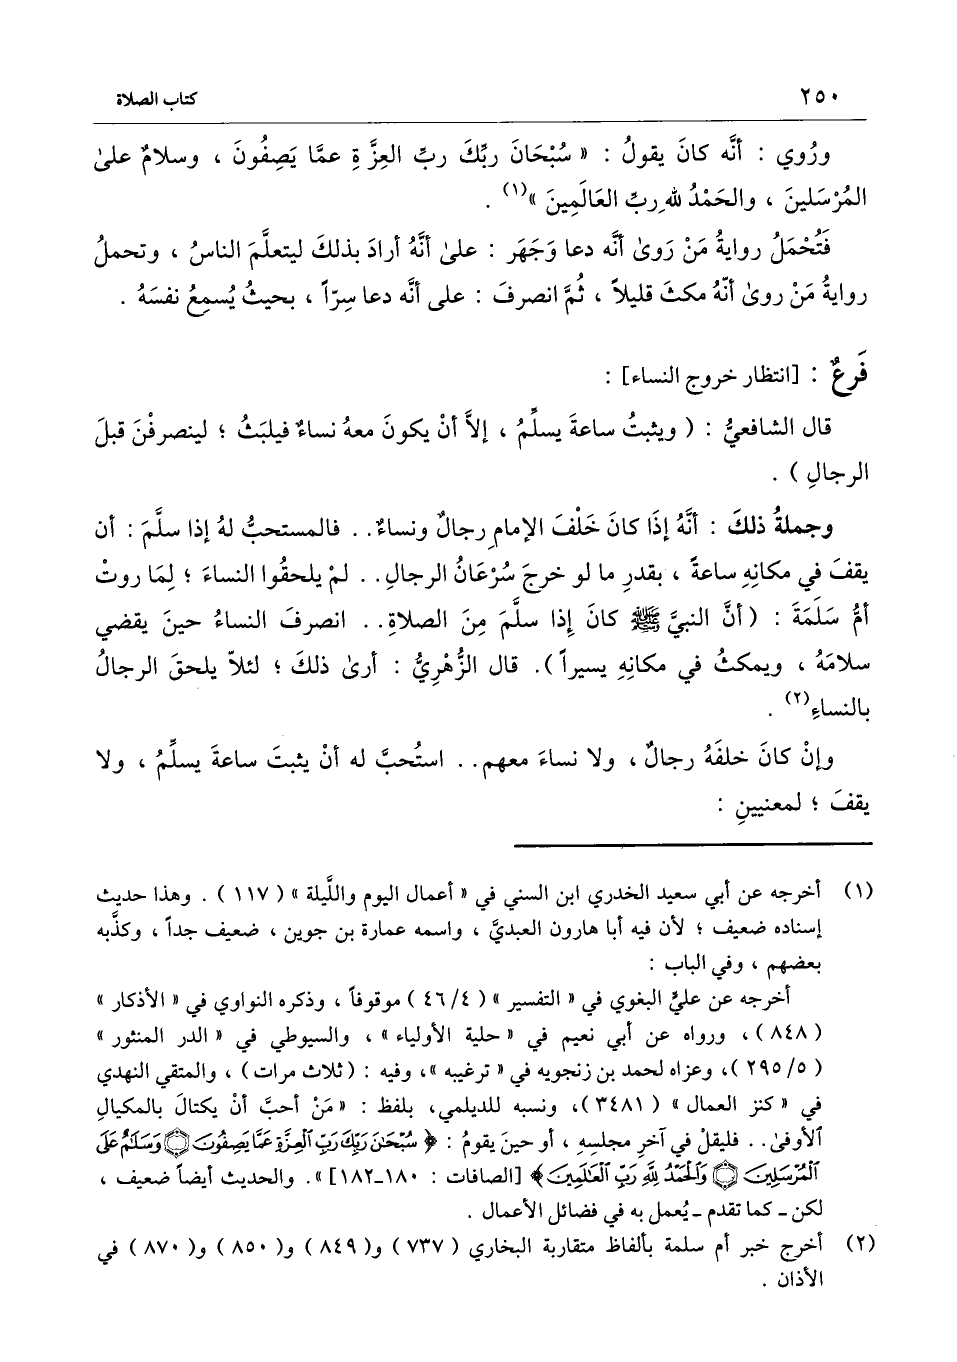 ٢٥٠ كتاب الصلاة
ورُوي : أنَّه كانَ يقولُ : « سُبْحَانَ ربِّكَ ربِّ العِزَّةِ عمَّا يَصِفُونَ ، وسلامٌ علىٰ
المُرْسَلينَ ، والحَمْدُ للهِ ربِّ العَالَمِينَ »(١) .
فَتُحْمَلُ روايةُ مَنْ رَوىٰ أنَّه دعا وَجَهَر : علىٰ أنَّهُ أرادَ بذلكَ ليتعلَّمَ الناسُ ، وتحملُ
روايةُ مَنْ روىٰ أنّهُ مكثَ قليلاً ، ثُمَّ انصرفَ : على أنَّه دعا سِرّاً ، بحيثُ يُسمِعُ نفسَهُ .
فَرعٌ : [انتظار خروج النساء] :
قال الشافعيُّ : ( ويثبتُ ساعةَ يسلِّمُ ، إلاَّ أنْ يكونَ معهُ نساءٌ فيلبَثُ ؛ لينصرفْنَ قبلَ
الرجالِ ) .
وجملةُ ذلكَ : أنَّهُ إذَا كانَ خَلْفَ الإمامِ رجالٌ ونساءٌ.. فالمستحبُّ لهُ إذا سلَّمَ : أن
يقفَ في مكانِهِ ساعةً ، بقدرِ ما لو خرجَ سُرْعَانُ الرجالِ.. لمْ يلحقُوا النساءَ ؛ لِمَا روتْ
أمُّ سَلَمَةَ : ( أنَّ النبيَّ ﷺ كانَ إذا سلَّمَ مِنَ الصلاةِ.. انصرفَ النساءُ حينَ يقضي
سلامَهُ ، ويمكثُ في مكانِهِ يسيراً ). قال الزُّهْرِيُّ : أرىٰ ذلكَ ؛ لئلاّ يلحقَ الرجالُ
بالنساءِ(٢) .
وإنْ كانَ خلفَهُ رجالٌ ، ولا نساءَ معهم.. استُحبَّ له أنْ يثبتَ ساعةَ يسلِّمُ ، ولا
يقفَ ؛ لمعنيينِ :
(١) أخرجه عن أبي سعيد الخدري ابن السني في « أعمال اليوم واللَّيلة » ( ١١٧ ) . وهذا حديث
إسناده ضعيف ؛ لأن فيه أبا هارون العبديَّ ، واسمه عمارة بن جوين ، ضعيف جداً ، وكذَّبه
بعضهم ، وفي الباب :
أخرجه عن عليٍّ البغوي في « التفسير » ( ٤٦/٤ ) موقوفاً ، وذكره النواوي في « الأذكار »
( ٨٤٨ ) ، ورواه عن أبي نعيم في « حلية الأولياء » ، والسيوطي في « الدر المنثور »
( ٢٩٥/٥ )، وعزاه لحمد بن زنجويه في « ترغيبه »، وفيه : (ثلاث مرات) ، والمتقي النهدي
في « كنز العمال » ( ٣٤٨١ )، ونسبه للديلمي، بلفظ : « مَنْ أحبَّ أنْ يكتالَ بالمكيالِ
ٱلأوفىٰ.. فليقلْ في آخرِ مجلسِهِ ، أو حينَ يقومُ : ﴿ سُبْحَٰنَ رَبِّكَ رَبِّ ٱلْعِزَّةِ عَمَّا يَصِفُونَ ۝ وَسَلَٰمٌ عَلَى
ٱلْمُرْسَلِينَ ۝ وَٱلْحَمْدُ لِلَّهِ رَبِّ ٱلْعَٰلَمِينَ ﴾ [الصافات : ١٨٠-١٨٢] ». والحديث أيضاً ضعيف ،
لكن - كما تقدم - يُعمل به في فضائل الأعمال .
(٢) أخرج خبر أم سلمة بألفاظ متقاربة البخاري ( ٧٣٧ ) و( ٨٤٩ ) و( ٨٥٠ ) و( ٨٧٠ ) في
الأذان .